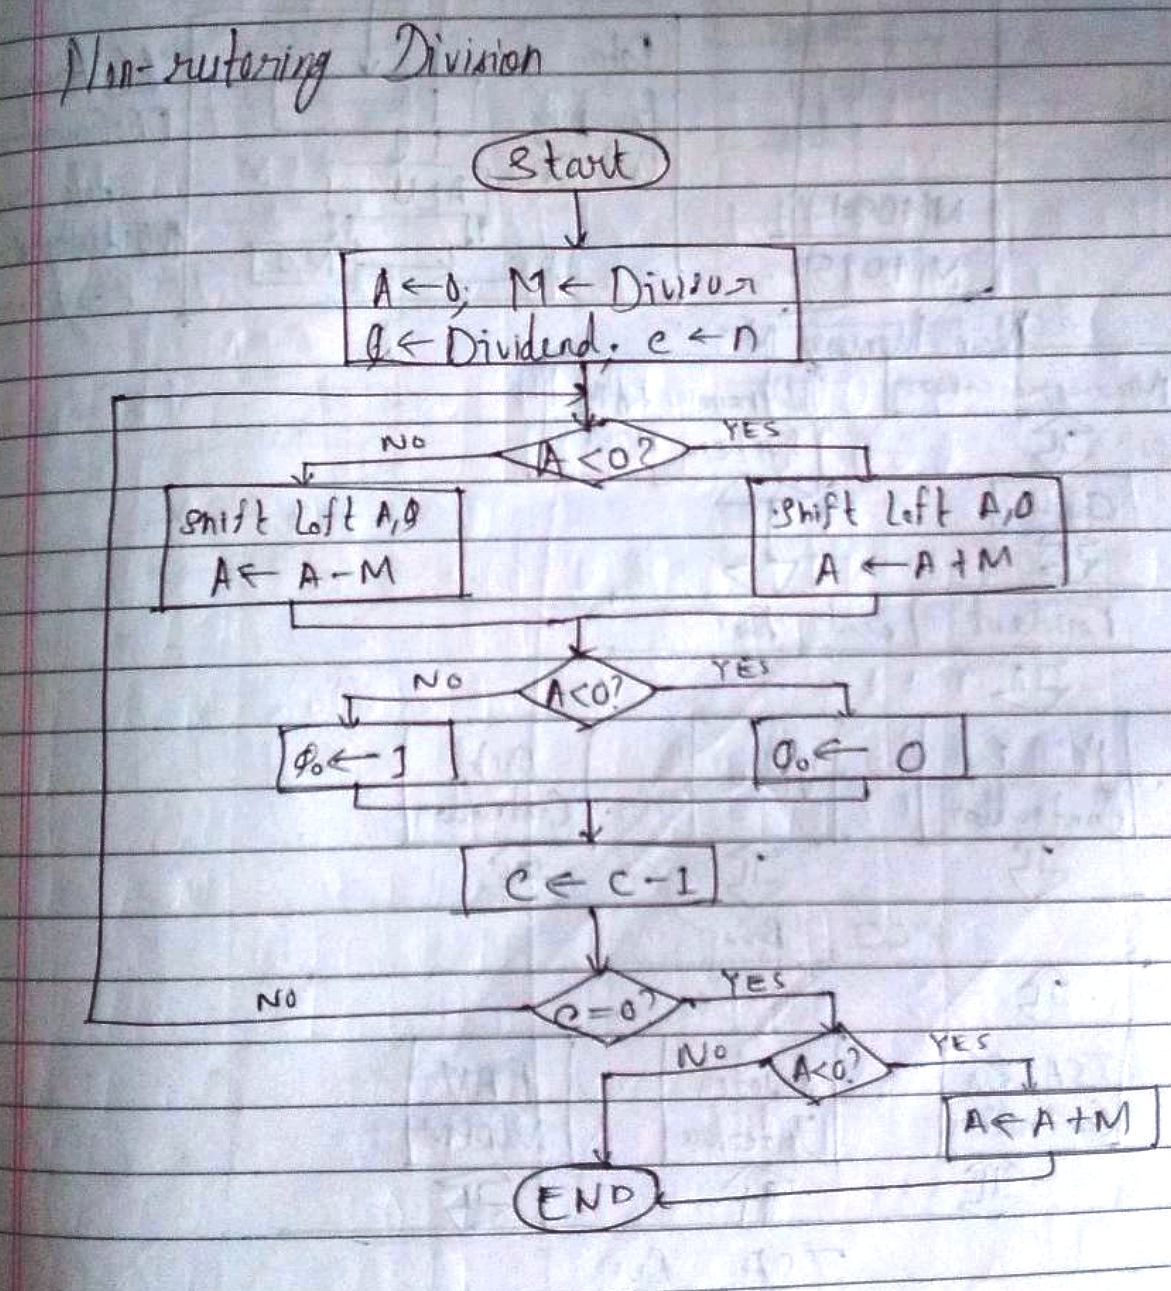 Non-rutoring Division
Start
A ← 0; M ← Divisor
Q ← Dividend; C ← n
A < 0?
NO
YES
Shift Left A,Q
A ← A - M
Shift Left A,Q
A ← A + M
A<0?
NO
YES
Q₀ ← 1
Q₀ ← 0
C ← C - 1
C = 0?
NO
YES
A<0?
NO
YES
A ← A + M
END